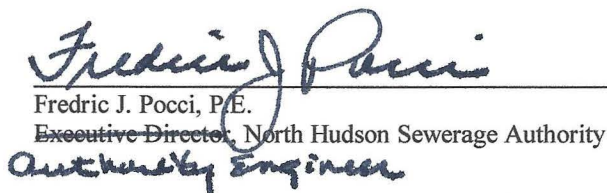 Fredric J. Pocci
Fredric J. Pocci, P.E.
Executive Director, North Hudson Sewerage Authority
Authority Engineer